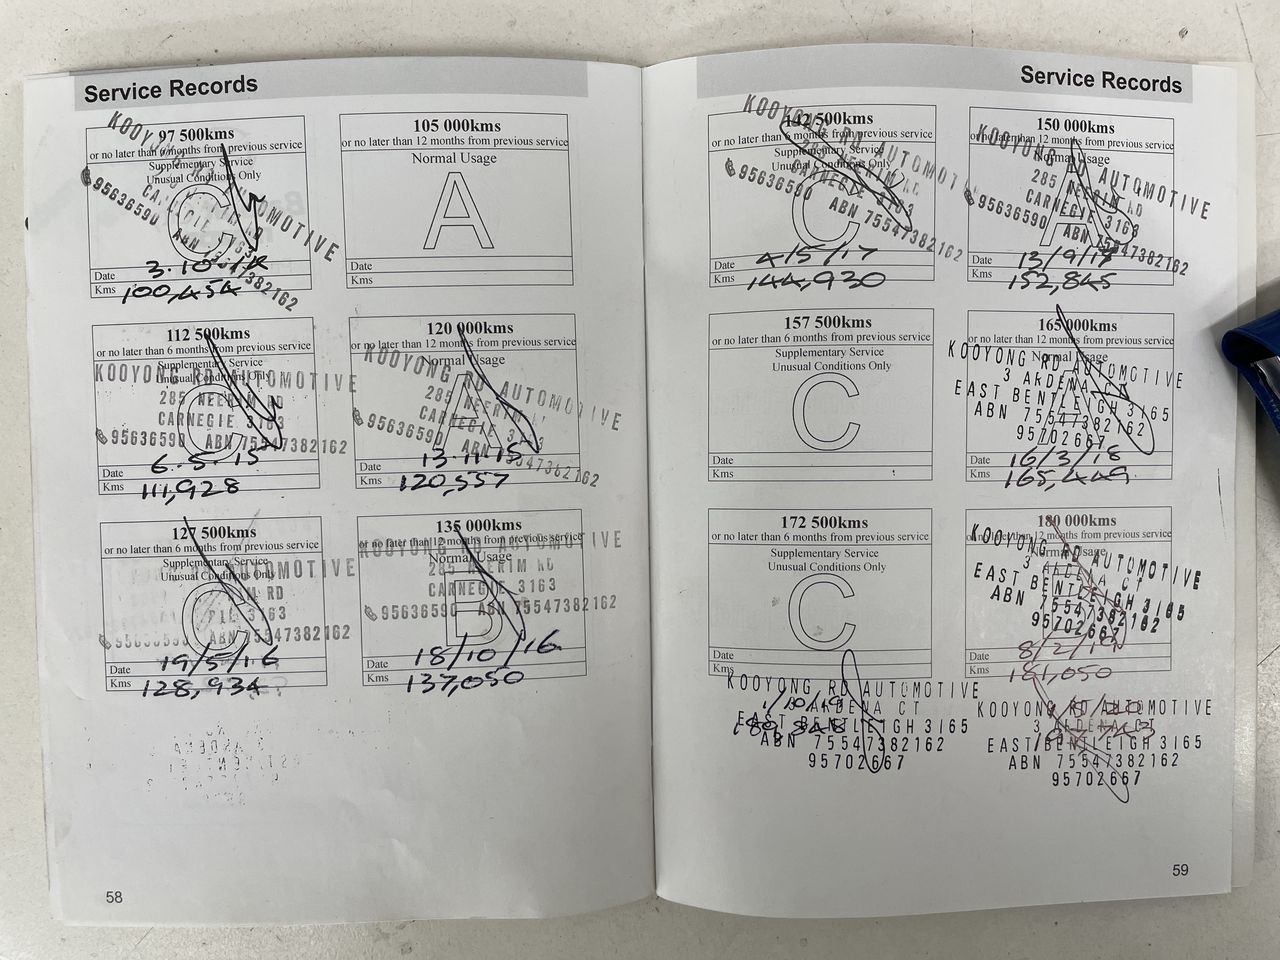 Service Records
KOOYONG RD AUTOMOTIVE
97 500kms
or no later than 6 months from previous service
Supplementary Service
Unusual Conditions Only
C
95636590 ABN
382162
Date 3.10.
Kms 100,454
105 000kms
or no later than 12 months from previous service
Normal Usage
A
Date
Kms
112 500kms
or no later than 6 months from previous service
Supplementary Service
Unusual Conditions Only
KOOYONG RD AUTOMOTIVE
285 NEERIM RD
CARNEGIE 3163
95636590 ABN 75547382162
C
Date 6.5.15
Kms 111,928
120 000kms
or no later than 12 months from previous service
Normal Usage
KOOYONG RD AUTOMOTIVE
285 NEERIM
CARNEGIE 3163
95636590 ABN 75547382162
A
Date 13.11.15
Kms 120,557
127 500kms
or no later than 6 months from previous service
Supplementary Service
Unusual Conditions Only
AUTOMOTIVE
RD
3163
95636590 ABN 75547382162
C
Date 19/5/16
Kms 128,934
135 000kms
or no later than 12 months from previous service
Normal Usage
KOOYONG RD AUTOMOTIVE
285 NEERIM RD
CARNEGIE 3163
95636590 ABN 75547382162
B
Date 18/10/16
Kms 137,050
58
Service Records
KOOYONG RD AUTOMOTIVE
142 500kms
or no later than 6 months from previous service
Supplementary Service
Unusual Conditions Only
285 NEERIM RD
CARNEGIE 3163
95636590 ABN 75547382162
C
Date 4/5/17
Kms 144,930
150 000kms
or no later than 12 months from previous service
Normal Usage
KOOYONG RD AUTOMOTIVE
285 NEERIM RD
CARNEGIE 3163
95636590 ABN 75547382162
A
Date 13/9/17
Kms 152,845
157 500kms
or no later than 6 months from previous service
Supplementary Service
Unusual Conditions Only
C
Date
Kms
165 000kms
or no later than 12 months from previous service
Normal Usage
KOOYONG RD AUTOMOTIVE
3 ARDENA CT
EAST BENTLEIGH 3165
ABN 75547382162
95702667
Date 16/3/18
Kms 165,449
172 500kms
or no later than 6 months from previous service
Supplementary Service
Unusual Conditions Only
C
Date
Kms
KOOYONG RD AUTOMOTIVE
1/10/19
3 ARDENA CT
EAST BENTLEIGH 3165
ABN 75547382162
95702667
180 000kms
or no later than 12 months from previous service
Normal Usage
KOOYONG RD AUTOMOTIVE
3 ARDENA CT
EAST BENTLEIGH 3165
ABN 75547382162
95702667
Date 8/2/19
Kms 181,050
KOOYONG RD AUTOMOTIVE
3 ARDENA CT
EAST BENTLEIGH 3165
ABN 75547382162
95702667
59